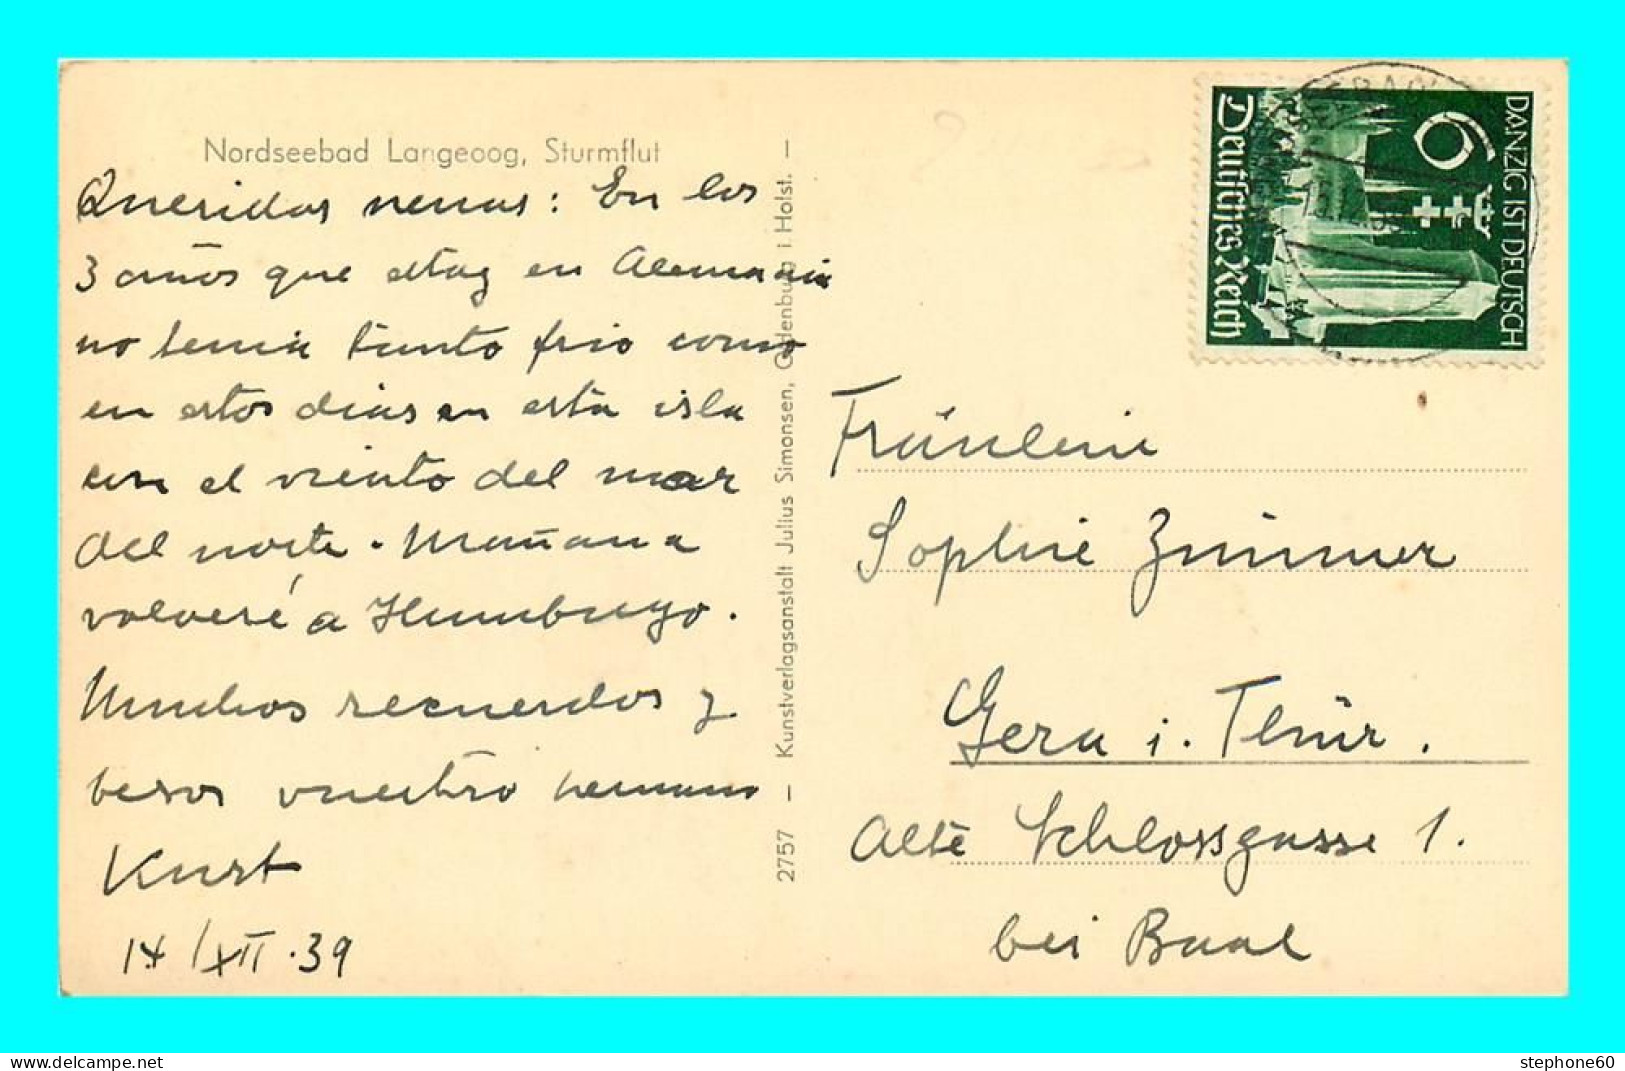 Nordseebad Langeoog, Sturmflut
Queridas nenas: En los
3 años que estoy en Alemania
no tenia tanto frio como
en estos dias en esta isla
con el viento del mar
del norte. Mañana
volveré a Hamburgo.
Muchos recuerdos y
besos vuestro hermano
Kurt
14/XII.39
2757 — Kunstverlagsanstalt Julius Simonsen, Oldenburg i. Holst. —
DANZIG IST DEUTSCH
6
Deutsches Reich
Fräulein
Sophie Zimmer
Gera i. Thür.
Alte Schlossgasse 1.
bei Baal
delcampe.net
stephone60